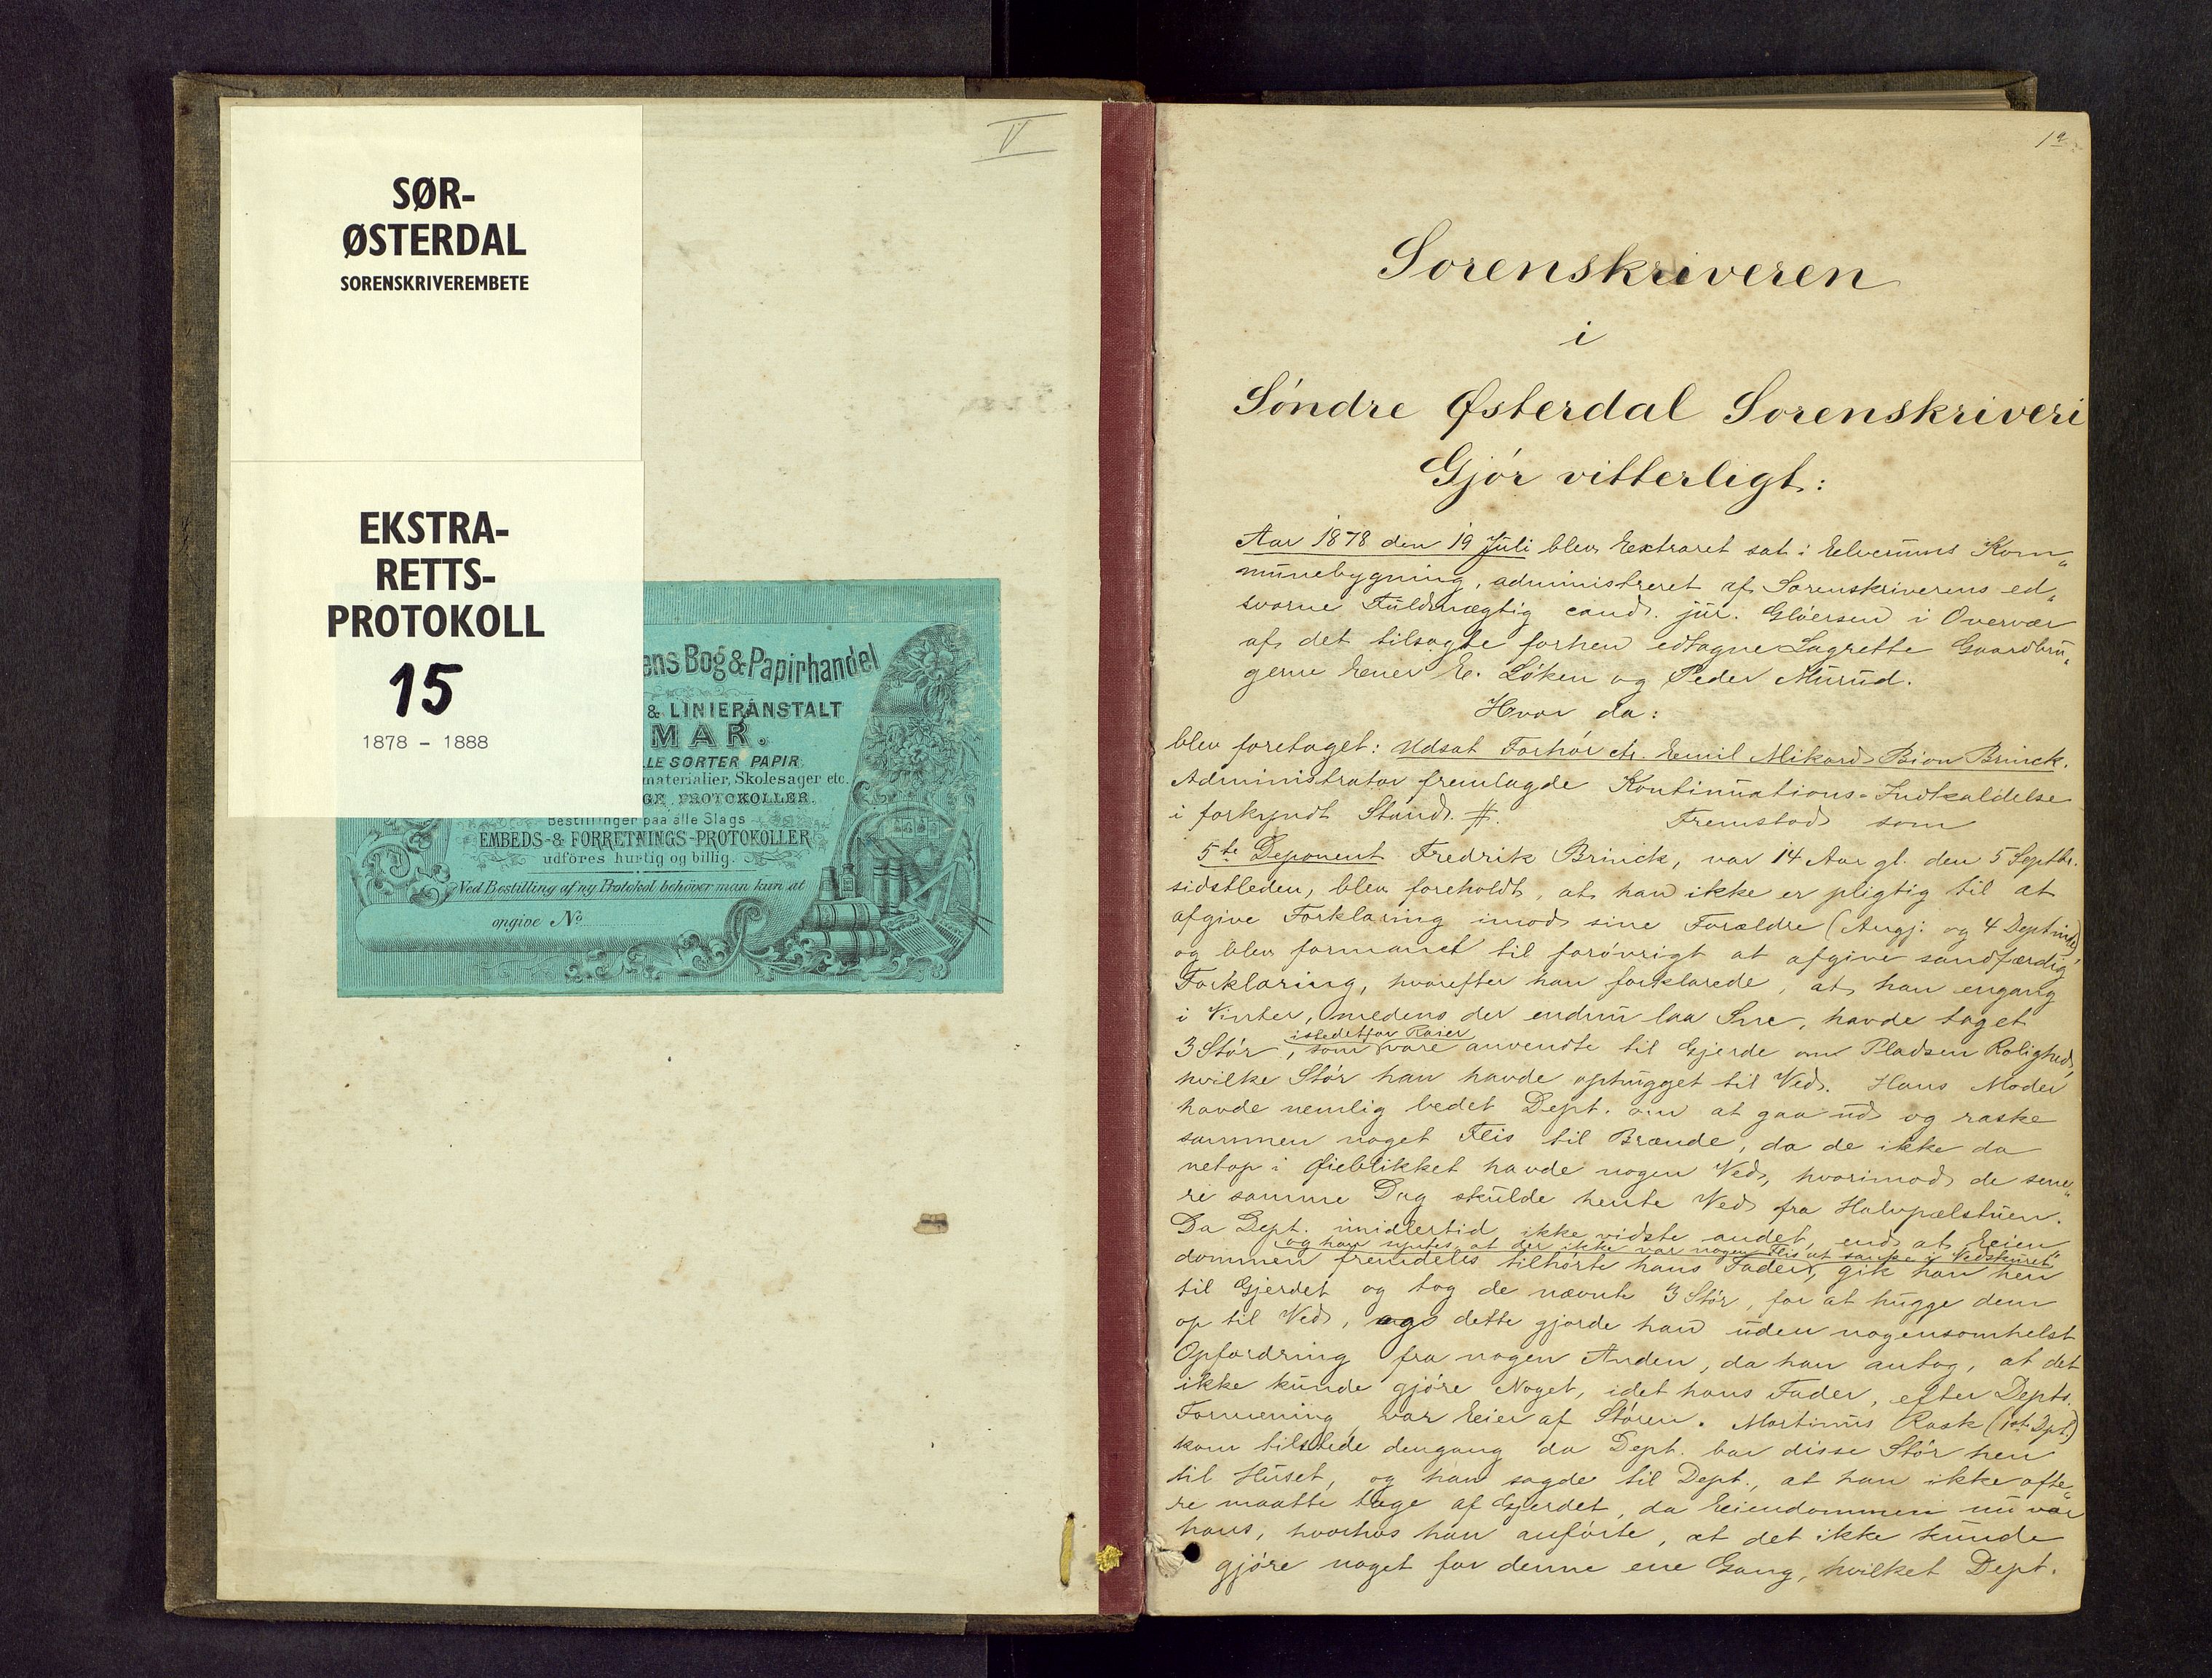 V
SØR-
ØSTERDAL
SORENSKRIVEREMBETE
EKSTRA-
RETTS-
PROTOKOLL
15
1878 - 1888
ens Bog & Papirhandel
& LINIERANSTALT
MAR.
LLE SORTER PAPIR
materialier, Skolesager etc.
GE PROTOKOLLER.
Bestillinger paa alle Slags
EMBEDS- & FORRETNINGS-PROTOKOLLER
udföres hurtig og billig.
Ved Bestilling af ny Protokol behöver man kun at
opgive No
1a
Sorenskriveren
i
Söndre Østerdal Sorenskriveri
Gjör vitterligt:
Aar 1878 den 19 Juli blev Extraret sat i Elverums Kom„
munebygning, administreret af Sorenskriverens ed„
svorne Fuldmægtig cand. jur. Glöersen i Overvær
af det tilsagte forhen edtagne Lagrette Gaardbru„
gerne Ener E. Löken og Peder Murud.
Hvor da:
blev foretaget: Udsat Forhör ctr. Emil Mikard Bion Brinck.
Administrator fremlagde Kontinuations-Indkaldelse
i forkyndt Stand. #. Fremstod som
5te Deponent Fredrik Brinck, var 14 Aar gl. den 5 Septbr.
sidstleden, blev foreholdt, at han ikke er pligtig til at
afgive Forklaring imod sine Forældre (Angj. og 4 Dept inde)
og blev formanet til forövrigt at afgive sandfærdig
Forklaring, hvorefter han forklarede, at han engang
i Vinter, medens der endnu laa Sne, havde taget
istedetfor Raier
3 Stör, som vare anvendte til Gjerde om Pladsen Rolighed,
hvilke Stör han havde ophugget til Ved. Hans Moder
havde nemlig bedet Dept. om at gaa ud og raske
sammen noget Flis til Brænde, da de ikke da
netop i Øieblikket havde nogen Ved, hvorimod de sene„
re samme Dag skulde hente Ved fra Halvpælstuen.
Da Dept. imidlertid ikke vidste andet, end at Eien„
og han syntes, at der ikke var nogen Flis at sanke i Vedskuret
dommen fremdeles tilhörte hans Fader, gik han hen
til Gjerdet og tog de nævnte 3 Stör, for at hugge dem
op til Ved, og dette gjorde han uden nogensomhelst
Opfordring fra nogen Anden, da han antog, at det
ikke kunde gjöre Noget, idet hans Fader, efter Depts.
Formening var Eier af Stören. Martinus Rask (1ste Dpt)
kom tilstede dengang da Dept. bar disse Stör hen
til Huset, og han sagde til Dept., at han ikke ofte„
re maatte tage af Gjerdet, da Eiendommen nu var
hans, hvorhos han anförte, at det ikke kunde
gjöre noget for denne ene Gang, hvilket Dept.